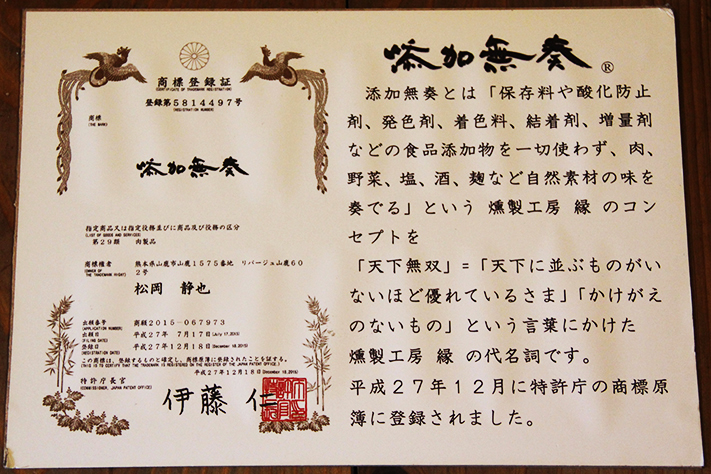 商標登録証
(CERTIFICATE OF TRADEMARK REGISTRATION)
登録第5814497号
(REGISTRATION NUMBER)
商標
(THE MARK)
添加無奏
指定商品又は指定役務並びに商品及び役務の区分
(LIST OF GOODS AND SERVICES)
第29類 肉製品
商標権者
(OWNER OF THE TRADEMARK RIGHT)
熊本県山鹿市山鹿1575番地 リバージュ山鹿60
2号
松岡 静也
出願番号
(APPLICATION NUMBER)
商願2015-067973
出願日
(FILING DATE)
平成27年 7月17日(July 17,2015)
登録日
(REGISTRATION DATE)
平成27年12月18日(December 18,2015)
この商標は、登録するものと確定し、商標原簿に登録されたことを証する。
(THIS IS TO CERTIFY THAT THE TRADEMARK IS REGISTERED ON THE REGISTER OF THE JAPAN PATENT OFFICE.)
平成27年12月18日(December 18,2015)
特許庁長官
(COMMISSIONER, JAPAN PATENT OFFICE)
伊藤 仁
添加無奏®
添加無奏とは「保存料や酸化防止
剤、発色剤、着色料、結着剤、増量剤
などの食品添加物を一切使わず、肉、
野菜、塩、酒、麹など自然素材の味を
奏でる」という 燻製工房 縁 のコン
セプトを
「天下無双」=「天下に並ぶものがい
ないほど優れているさま」「かけがえ
のないもの」という言葉にかけた
燻製工房 縁 の代名詞です。
平成27年12月に特許庁の商標原
簿に登録されました。